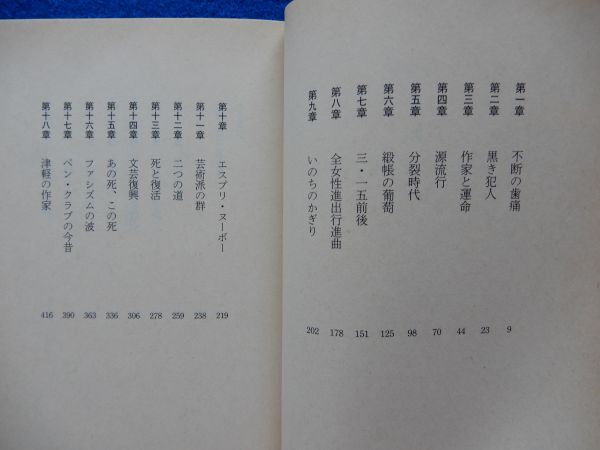 第一章 不断の歯痛 9
第二章 黒き犯人 23
第三章 作家と運命 44
第四章 源流行 70
第五章 分裂時代 98
第六章 緞帳の葡萄 125
第七章 三・一五前後 151
第八章 全女性進出行進曲 178
第九章 いのちのかぎり 202
第十章 エスプリ・ヌーボー 219
第十一章 芸術派の群 238
第十二章 二つの道 259
第十三章 死と復活 278
第十四章 文芸復興 306
第十五章 あの死、この死 336
第十六章 ファシズムの波 363
第十七章 ペン・クラブの今昔 390
第十八章 津軽の作家 416